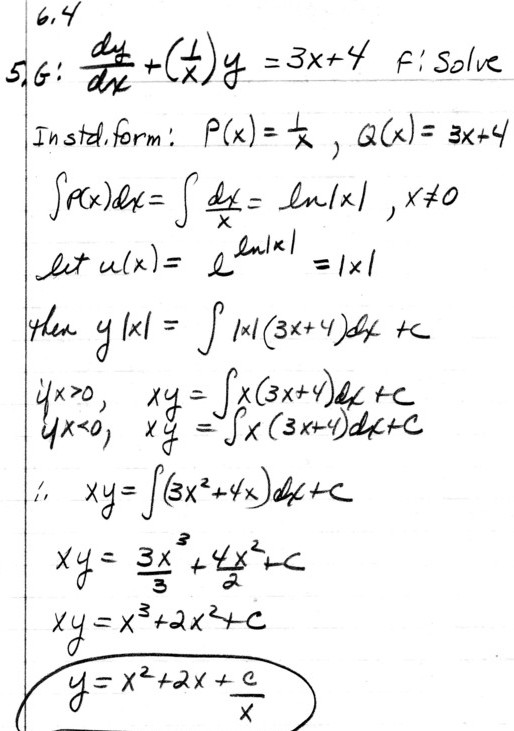 6.4
5. G: dy/dx + (1/x) y = 3x+4 F: Solve
In std. form: P(x) = 1/x , Q(x) = 3x+4
∫P(x)dx = ∫ dx/x = ln|x| , x≠0
let u(x) = e^ln|x| = |x|
then y|x| = ∫ |x|(3x+4)dx + c
if x>0, xy = ∫x(3x+4)dx + c
if x<0, xy = ∫x(3x+4)dx + c
∴ xy = ∫(3x²+4x)dx + c
xy = 3x³/3 + 4x²/2 + c
xy = x³+2x²+c
y = x²+2x + c/x